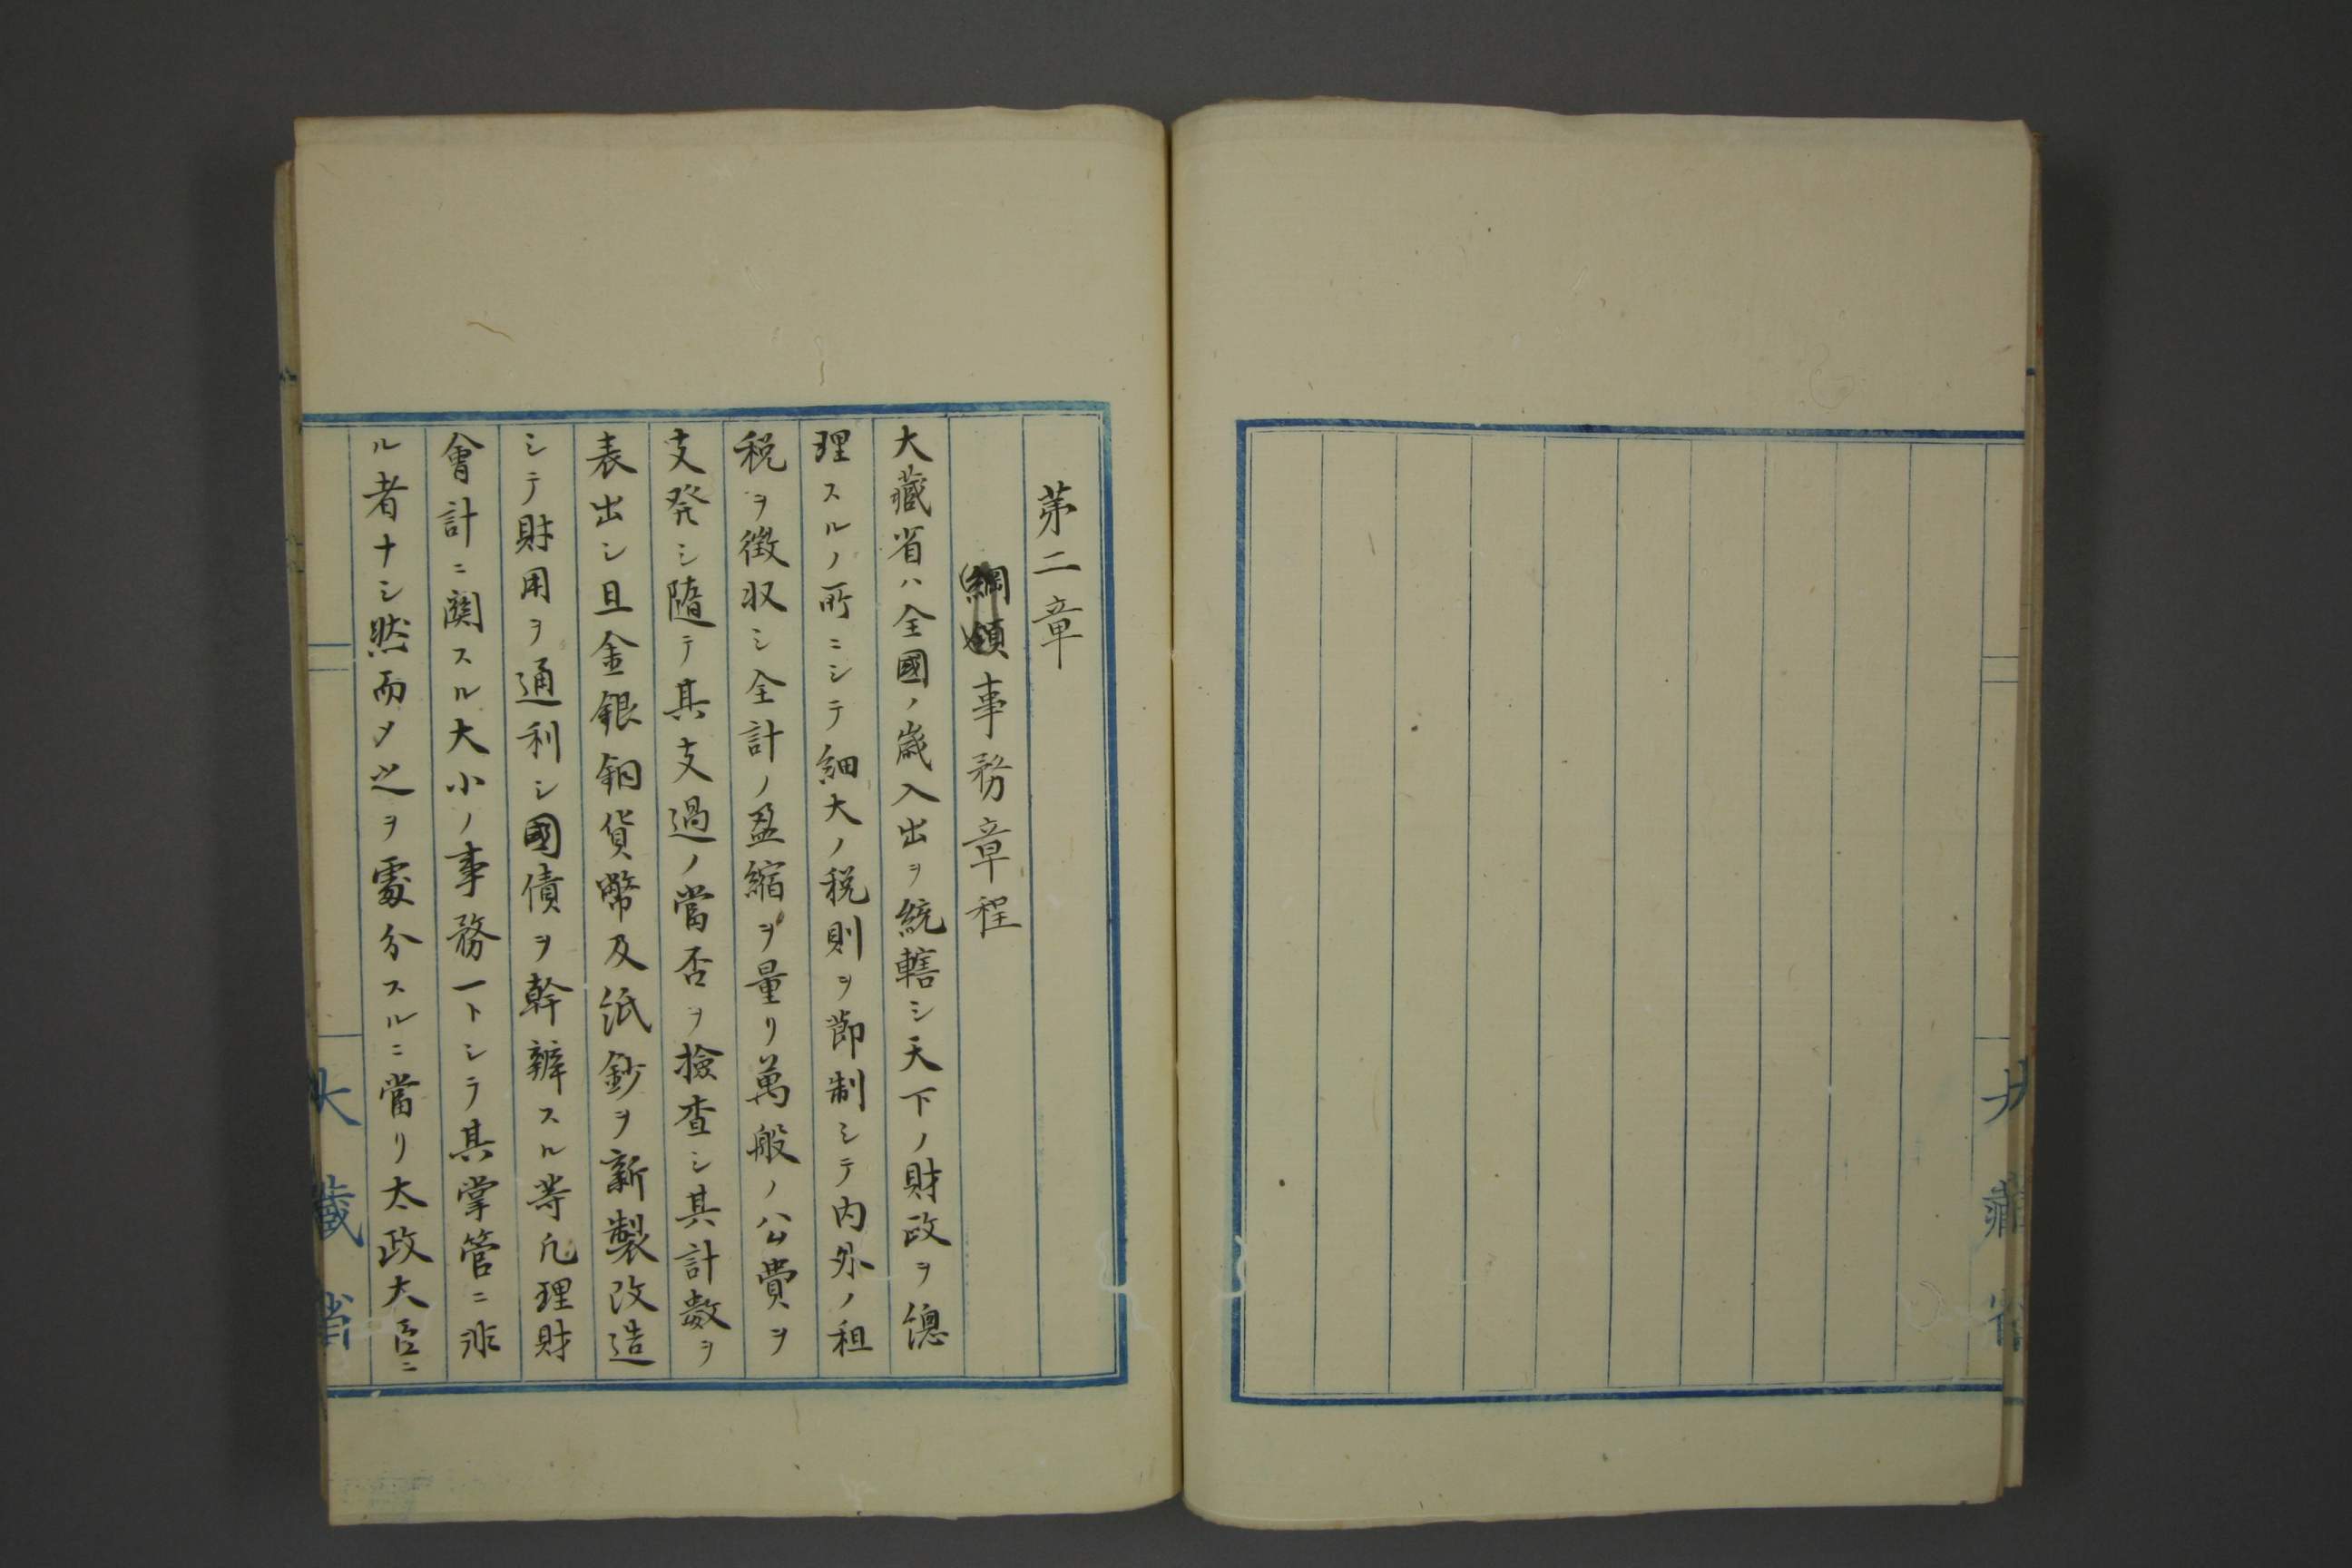 大藏省
苐二章
綱領事務章程
大藏省ハ全國ノ歳入出ヲ統轄シ天下ノ財政ヲ總
理スルノ所ニシテ細大ノ税則ヲ節制シテ内外ノ租
税ヲ徴収シ全計ノ盈縮ヲ量リ萬般ノ公費ヲ
支発シ隨テ其支過ノ當否ヲ撿査シ其計數ヲ
表出シ且金銀銅貨幣及紙鈔ヲ新製改造
シテ財用ヲ通利シ國債ヲ幹辨スル等凡理財
會計ニ関スル大小ノ事務一トシテ其掌管ニ非
ル者ナシ然而メ之ヲ處分スルニ當リ太政大臣ニ
大藏省